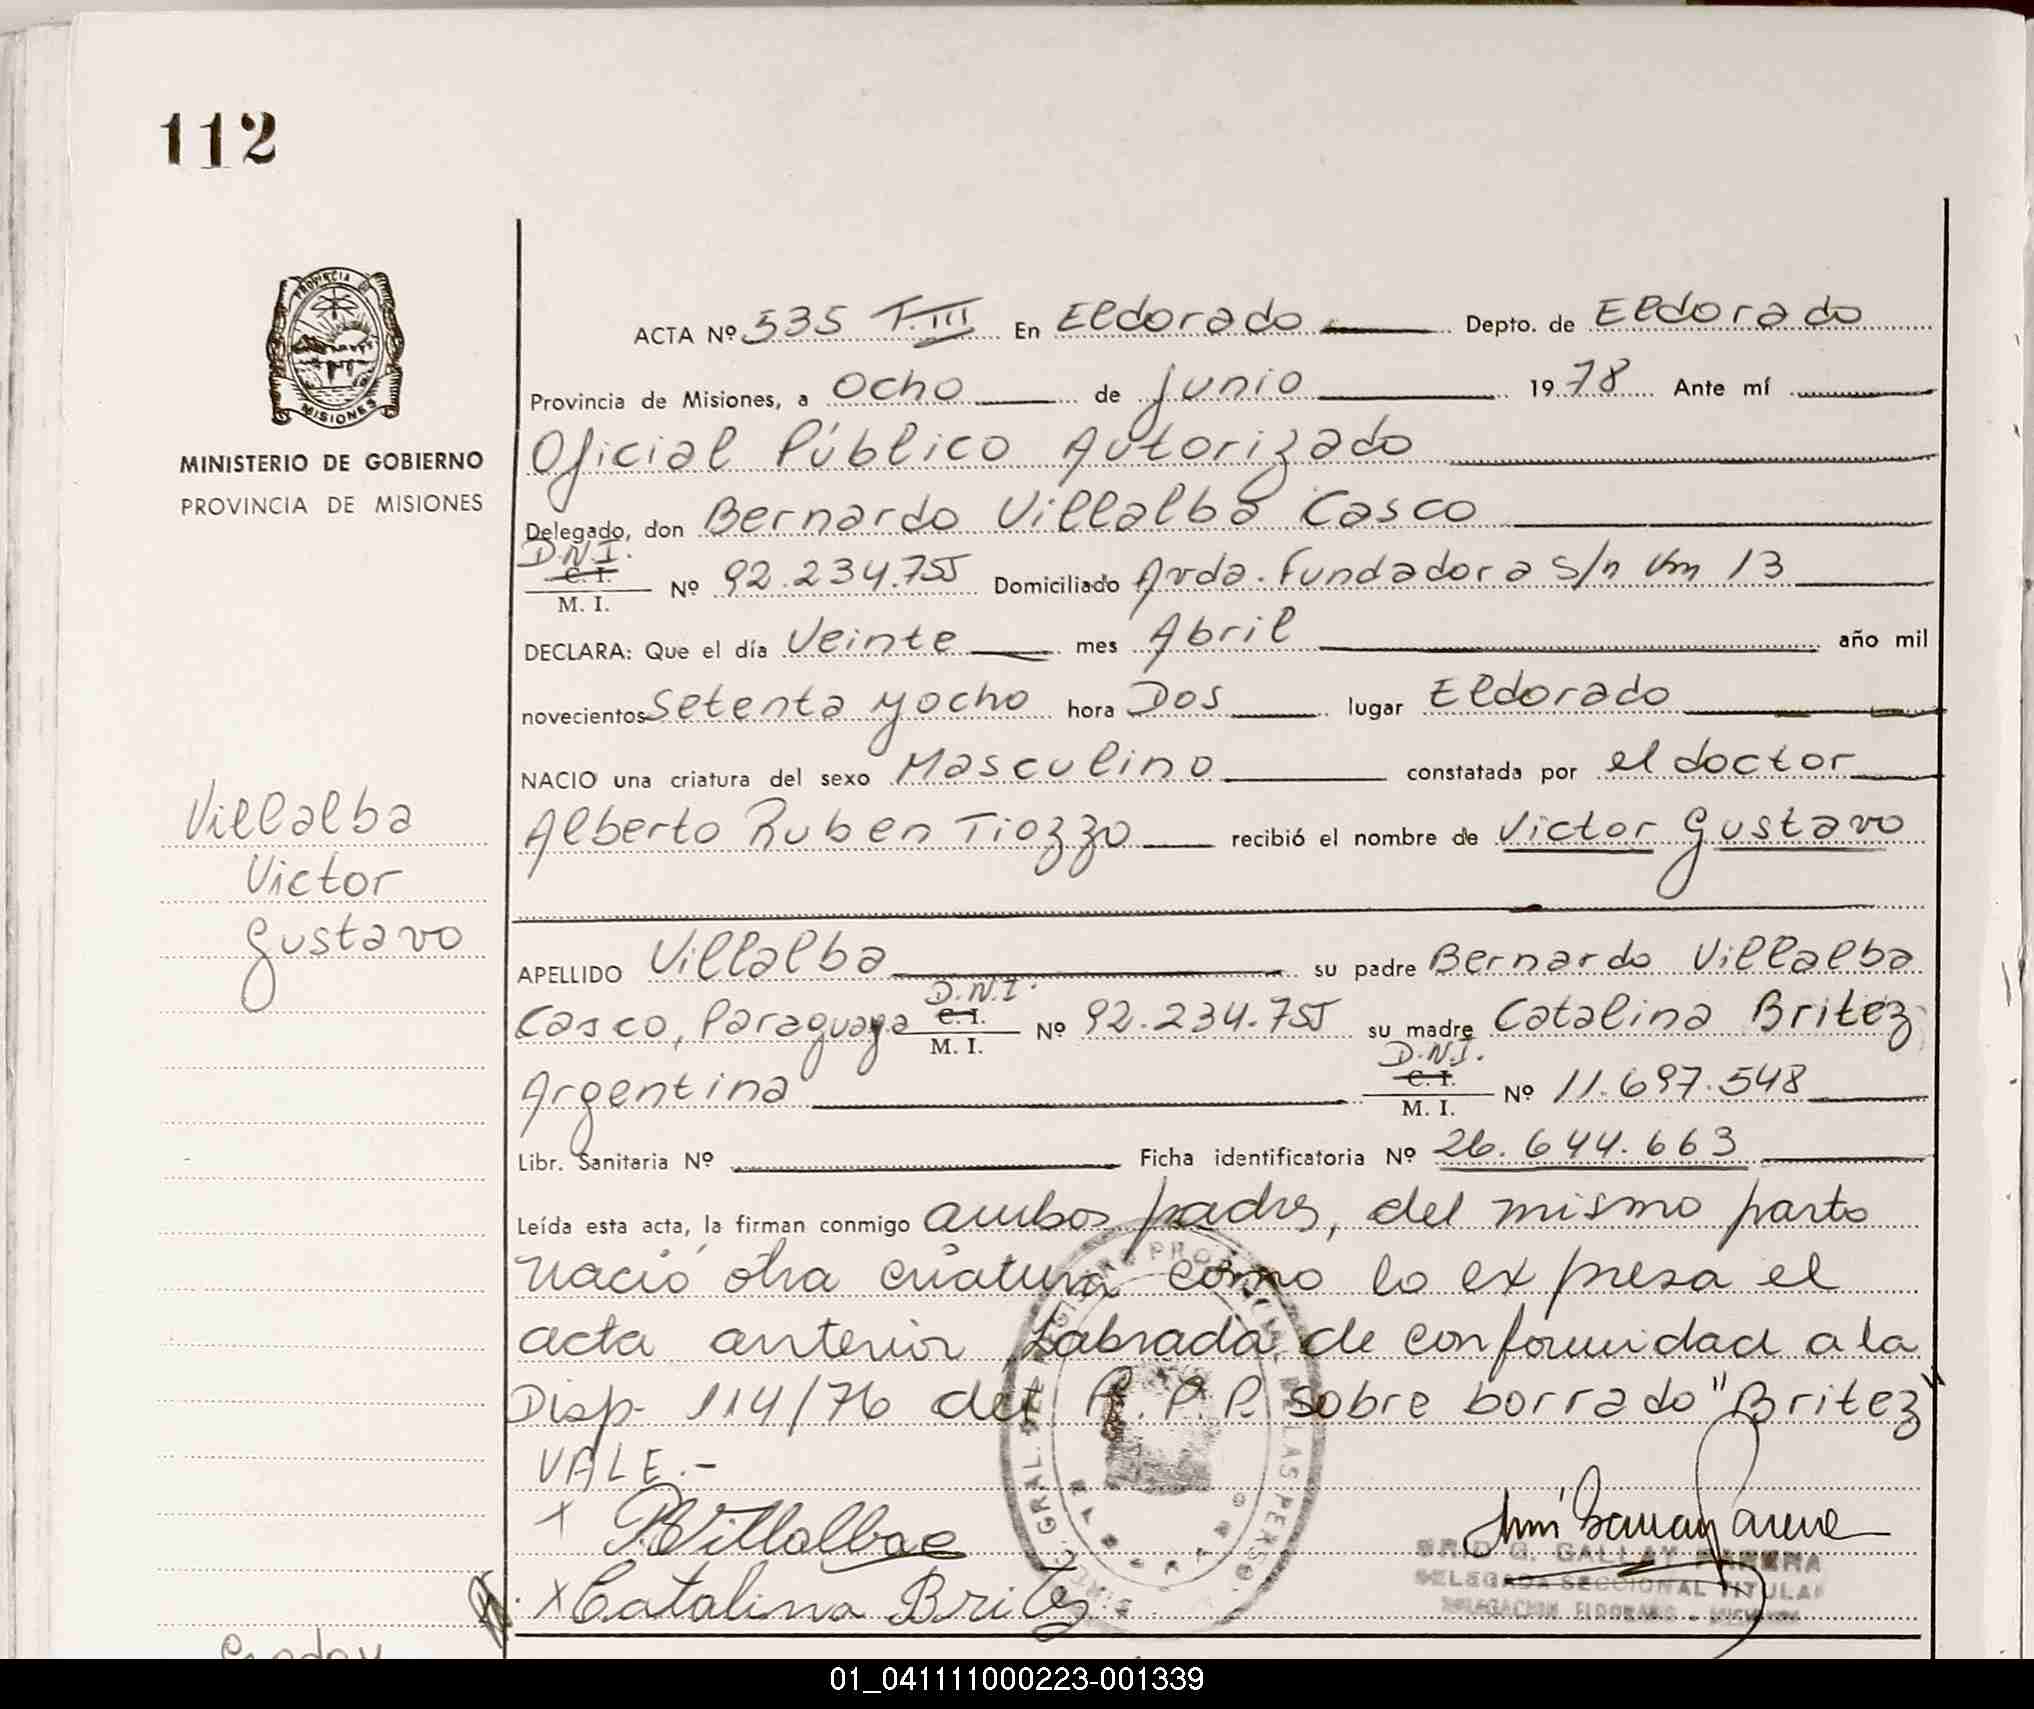 112
PROVINCIA DE
MISIONES
MINISTERIO DE GOBIERNO
PROVINCIA DE MISIONES
ACTA Nº 535 T.III En Eldorado Depto. de Eldorado
Provincia de Misiones, a Ocho de Junio 1978 Ante mí
Oficial Público Autorizado
Delegado, don Bernardo Villalba Casco
D.N.I.
C. I.
M. I. Nº 92.234.755 Domiciliado Avda. Fundadora S/n Km 13
DECLARA: Que el día Veinte mes Abril año mil
novecientos Setenta y ocho hora Dos lugar Eldorado
NACIO una criatura del sexo Masculino constatada por el doctor
Alberto Ruben Tiozzo recibió el nombre de Victor Gustavo
Villalba
Victor
Gustavo
APELLIDO Villalba su padre Bernardo Villalba
D.N.I.
Casco, Paraguaya C. I. M. I. Nº 92.234.755 su madre Catalina Britez
D.N.I.
Argentina C. I. M. I. Nº 11.697.548
Libr. Sanitaria Nº Ficha identificatoria Nº 26.644.663
Leída esta acta, la firman conmigo ambos padres, del mismo parto
nació otra criatura como lo expresa el
acta anterior Labrada de conformidad a la
Disp. 114/76 del R.P.P. sobre borrado "Britez"
VALE.-
x B Villalba c
x Catalina Britez
BRID G. GALLAY PARERA
DELEGADA SECCIONAL TITULAR
DELEGACION ELDORADO - MISIONES
01_041111000223-001339